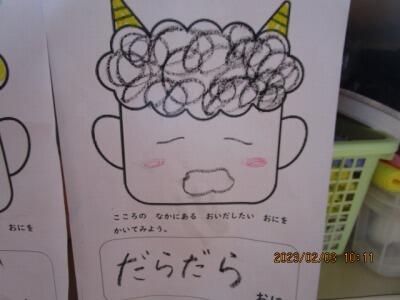 こころの なかにある おいだしたい おにを
かいてみよう。
だらだら
おに
2023/02/03 10:11